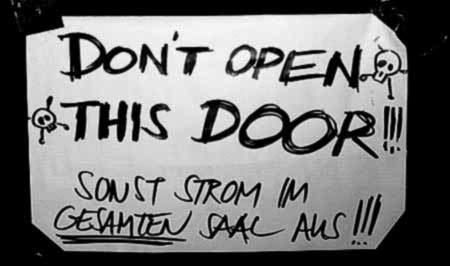 DON'T OPEN
THIS DOOR!!!
SONST STROM IM
GESAMTEN SAAL AUS!!!